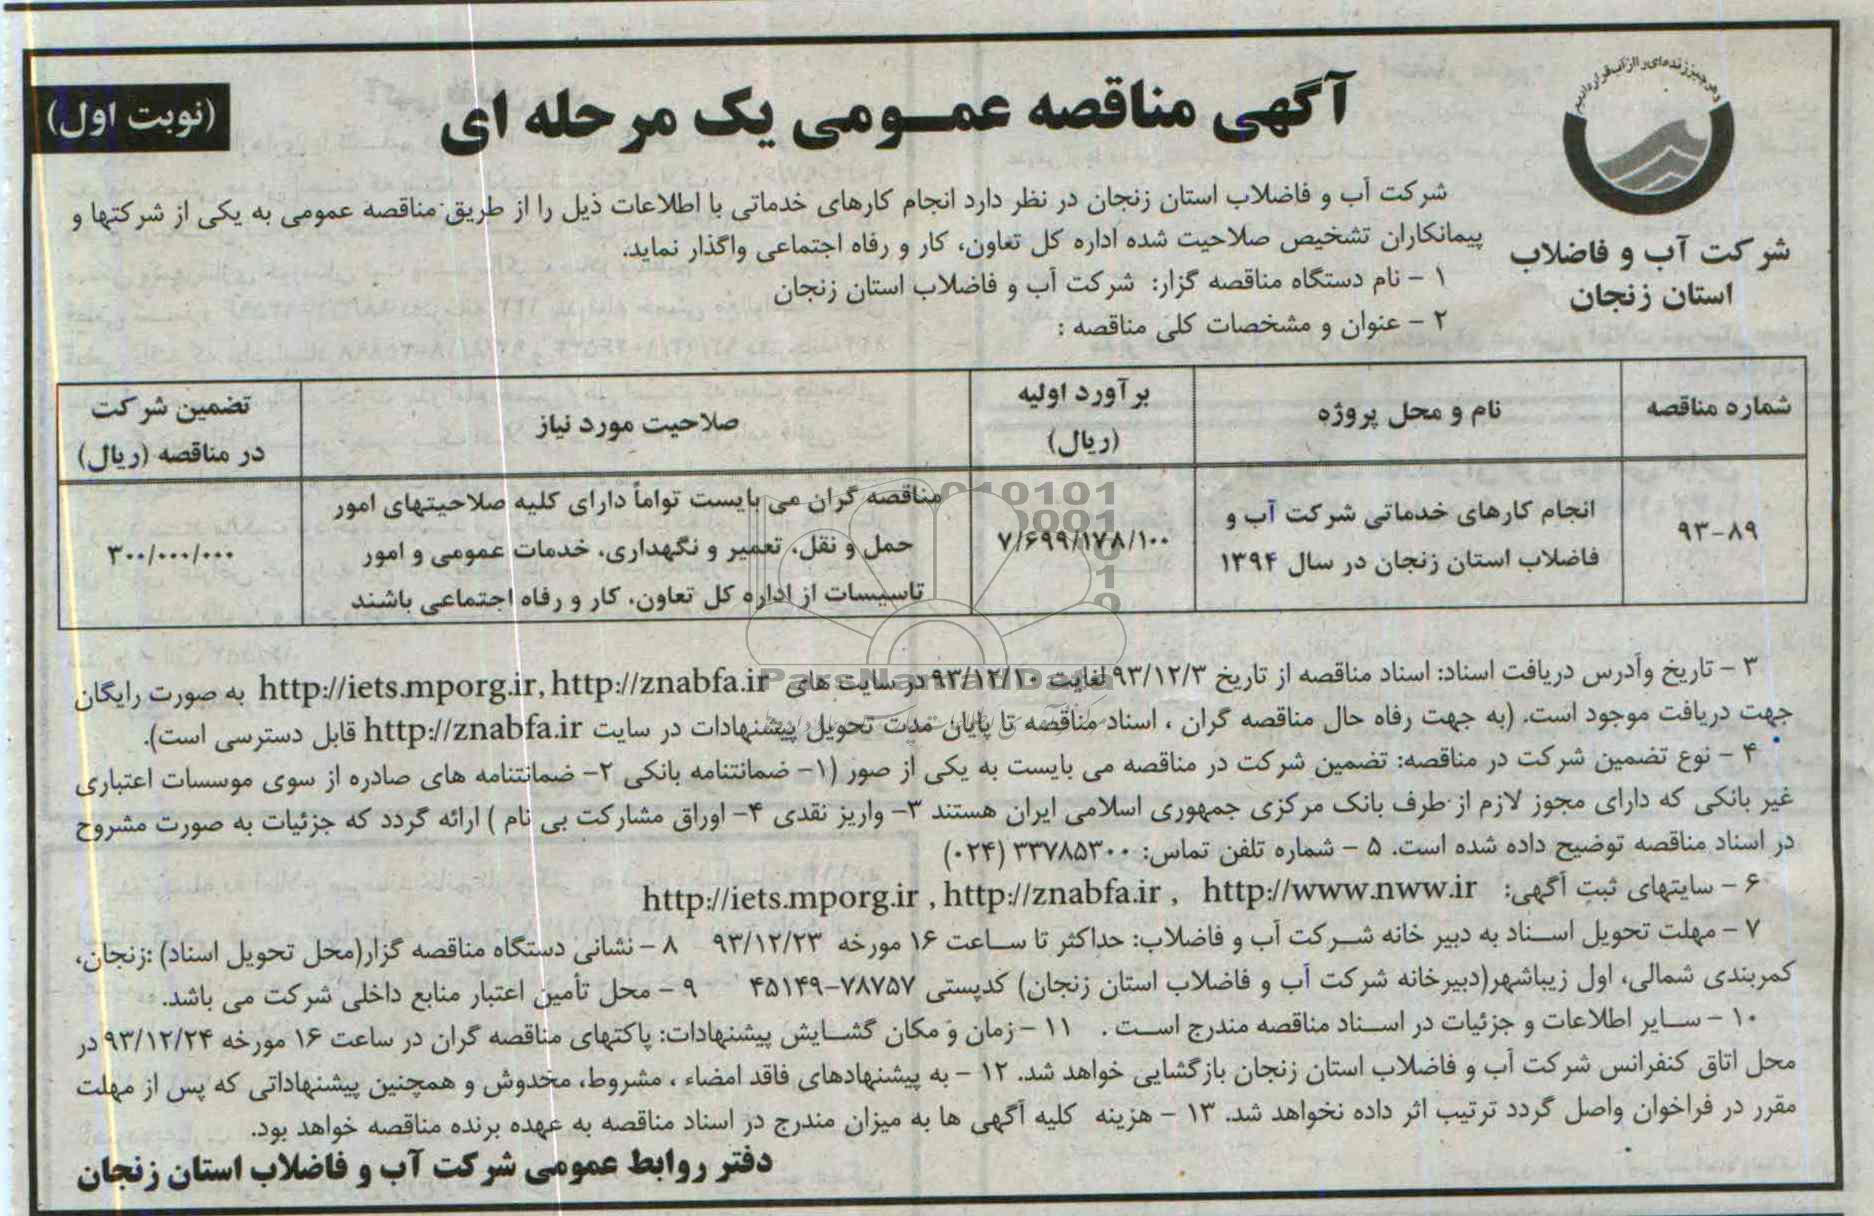 و هر چیز زنده‌ای را از آب قرار دادیم
شرکت آب و فاضلاب
استان زنجان
آگهی مناقصه عمـومی یک مرحله ای
(نوبت اول)
شرکت آب و فاضلاب استان زنجان در نظر دارد انجام کارهای خدماتی با اطلاعات ذیل را از طریق مناقصه عمومی به یکی از شرکتها و
پیمانکاران تشخیص صلاحیت شده اداره کل تعاون، کار و رفاه اجتماعی واگذار نماید.
۱ - نام دستگاه مناقصه گزار: شرکت آب و فاضلاب استان زنجان
۲ - عنوان و مشخصات کلی مناقصه :
شماره مناقصه
نام و محل پروژه
برآورد اولیه
(ریال)
صلاحیت مورد نیاز
تضمین شرکت
در مناقصه (ریال)
۹۳-۸۹
انجام کارهای خدماتی شرکت آب و
فاضلاب استان زنجان در سال ۱۳۹۴
۷/۶۹۹/۱۷۸/۱۰۰
مناقصه گران می بایست تواماً دارای کلیه صلاحیتهای امور
حمل و نقل، تعمیر و نگهداری، خدمات عمومی و امور
تاسیسات از اداره کل تعاون، کار و رفاه اجتماعی باشند
۳۰۰/۰۰۰/۰۰۰
۳ - تاریخ وآدرس دریافت اسناد: اسناد مناقصه از تاریخ ۹۳/۱۲/۳ لغایت ۹۳/۱۲/۱۰ در سایت های http://iets.mporg.ir, http://znabfa.ir به صورت رایگان
جهت دریافت موجود است. (به جهت رفاه حال مناقصه گران ، اسناد مناقصه تا پایان مدت تحویل پیشنهادات در سایت http://znabfa.ir قابل دسترسی است).
۴ - نوع تضمین شرکت در مناقصه: تضمین شرکت در مناقصه می بایست به یکی از صور (۱- ضمانتنامه بانکی ۲- ضمانتنامه های صادره از سوی موسسات اعتباری
غیر بانکی که دارای مجوز لازم از طرف بانک مرکزی جمهوری اسلامی ایران هستند ۳- واریز نقدی ۴- اوراق مشارکت بی نام ) ارائه گردد که جزئیات به صورت مشروح
در اسناد مناقصه توضیح داده شده است. ۵ - شماره تلفن تماس: ۳۳۷۸۵۳۰۰ (۰۲۴)
۶ - سایتهای ثبت آگهی: http://iets.mporg.ir , http://znabfa.ir , http://www.nww.ir
۷ - مهلت تحویل اسـناد به دبیر خانه شـرکت آب و فاضلاب: حداکثر تا سـاعت ۱۶ مورخه ۹۳/۱۲/۲۳ ۸ - نشانی دستگاه مناقصه گزار(محل تحویل اسناد) :زنجان،
کمربندی شمالی، اول زیباشهر(دبیرخانه شرکت آب و فاضلاب استان زنجان) کدپستی ۷۸۷۵۷-۴۵۱۴۹ ۹ - محل تأمین اعتبار منابع داخلی شرکت می باشد.
۱۰ - سـایر اطلاعات و جزئیات در اسـناد مناقصه مندرج اسـت . ۱۱ - زمان و مکان گشـایش پیشنهادات: پاکتهای مناقصه گران در ساعت ۱۶ مورخه ۹۳/۱۲/۲۴ در
محل اتاق کنفرانس شرکت آب و فاضلاب استان زنجان بازگشایی خواهد شد. ۱۲ - به پیشنهادهای فاقد امضاء ، مشروط، مخدوش و همچنین پیشنهاداتی که پس از مهلت
مقرر در فراخوان واصل گردد ترتیب اثر داده نخواهد شد. ۱۳ - هزینه کلیه آگهی ها به میزان مندرج در اسناد مناقصه به عهده برنده مناقصه خواهد بود.
دفتر روابط عمومی شرکت آب و فاضلاب استان زنجان
ParsNamadData